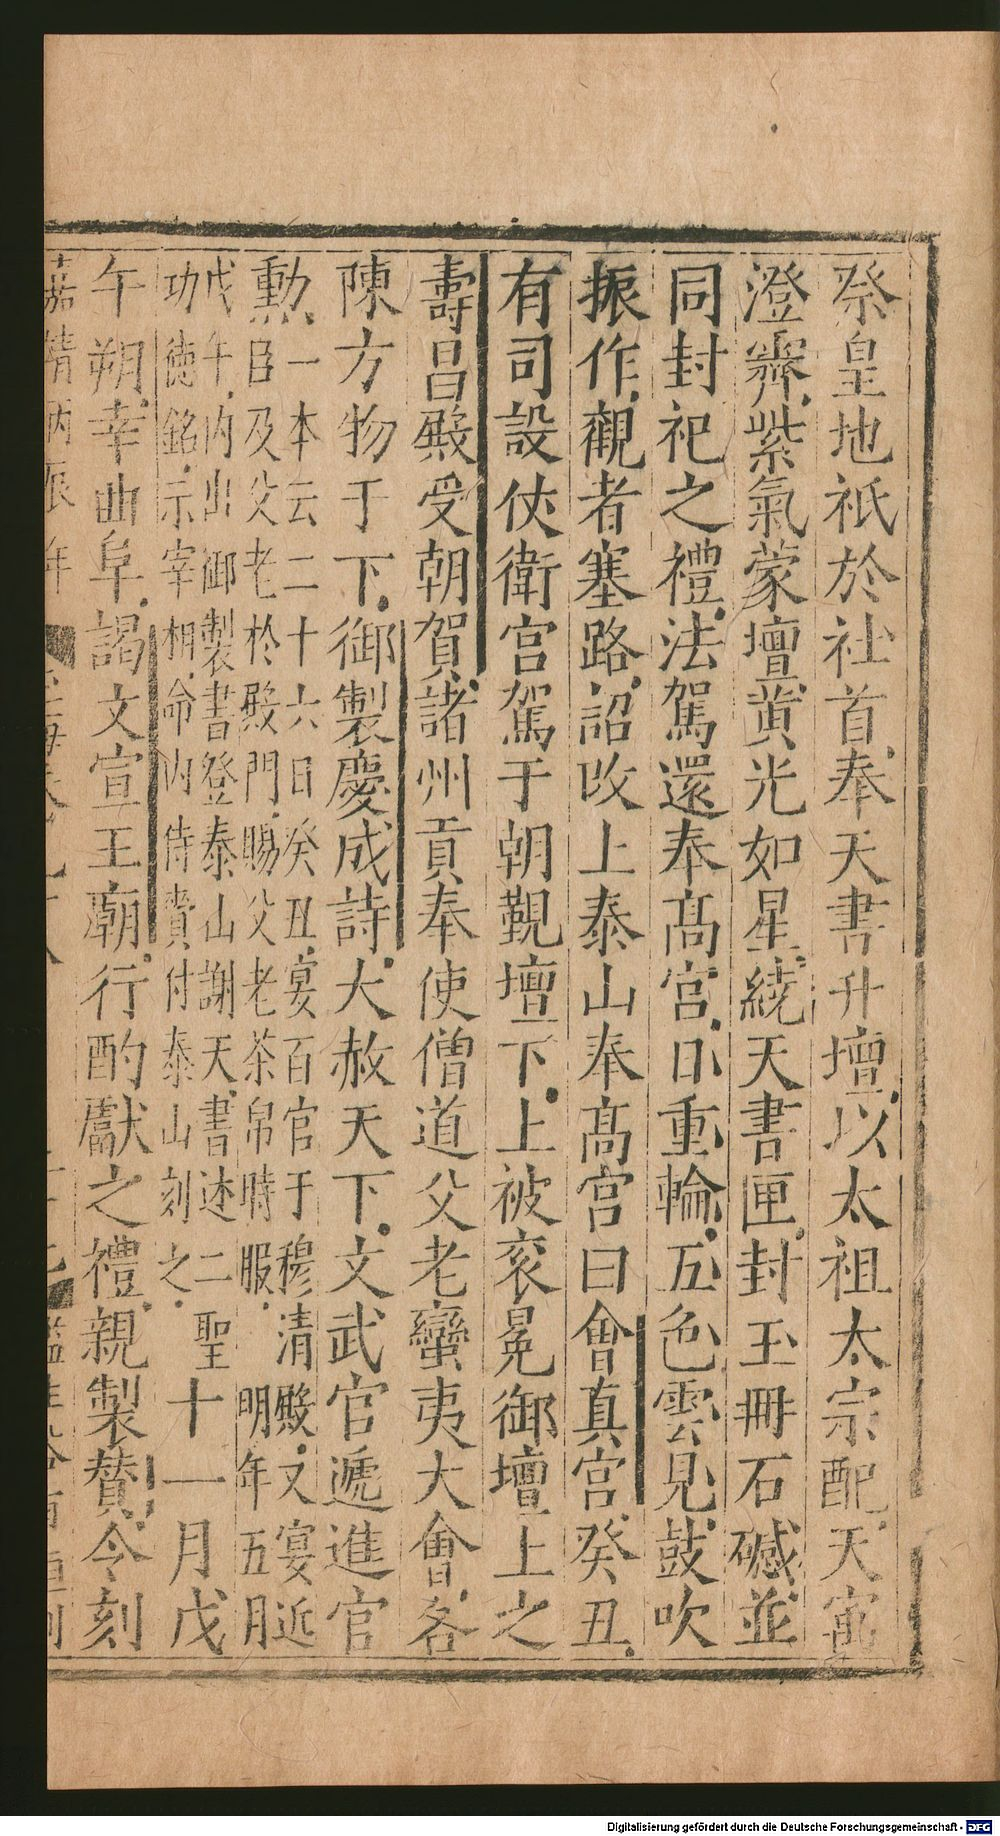 祭皇地祇於社首奉天書升壇以太祖太宗配天寓
澄霽紫氣蒙壇黄光如星繞天書匣封玉冊石䃭並
同封祀之禮法駕還奉高宫日重輪五色雲見鼓吹
振作觀者塞路詔改上泰山奉高宫曰會真宫癸丑
有司設仗衛宫駕于朝覲壇下上被衮冕御壇上之
壽昌殿受朝賀諸州貢奉使僧道父老蠻夷大會各
陳方物于下御製慶成詩大赦天下文武官遞進官
勲一本云二十六日癸丑宴百官于穆清殿又宴近
臣及父老於殿門賜父老茶帛時服明年五月
戊午内出御製書登泰山謝天書述二聖
功德銘示宰相命内侍賷付泰山刻之十一月戊
午朔幸曲阜謁文宣王廟行酌獻之禮親製賛令刻
嘉靖丙辰年
Digitalisierung gefördert durch die Deutsche Forschungsgemeinschaft - DFG